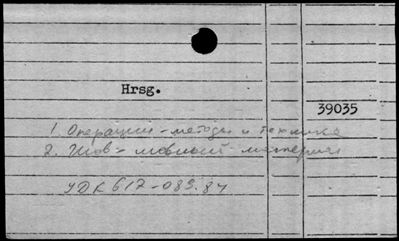 Hrsg.
39035
1. Операции - методы и техника
2. Шов - шовный материал
УДК 617-089.84